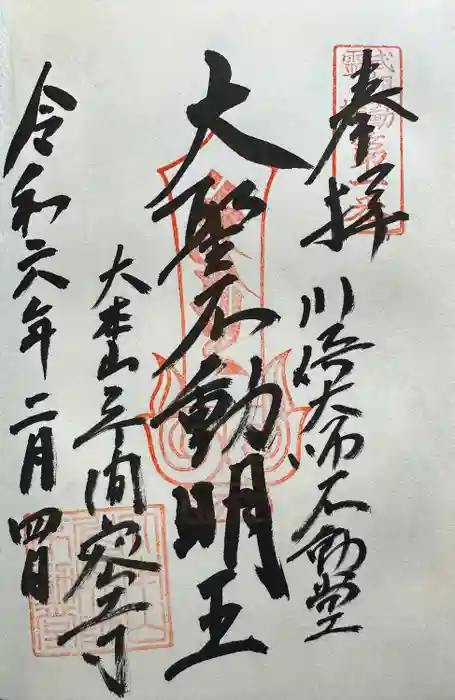 奉拝
川崎大師不動堂
大聖不動明王
大本山平間寺
令和六年二月四日